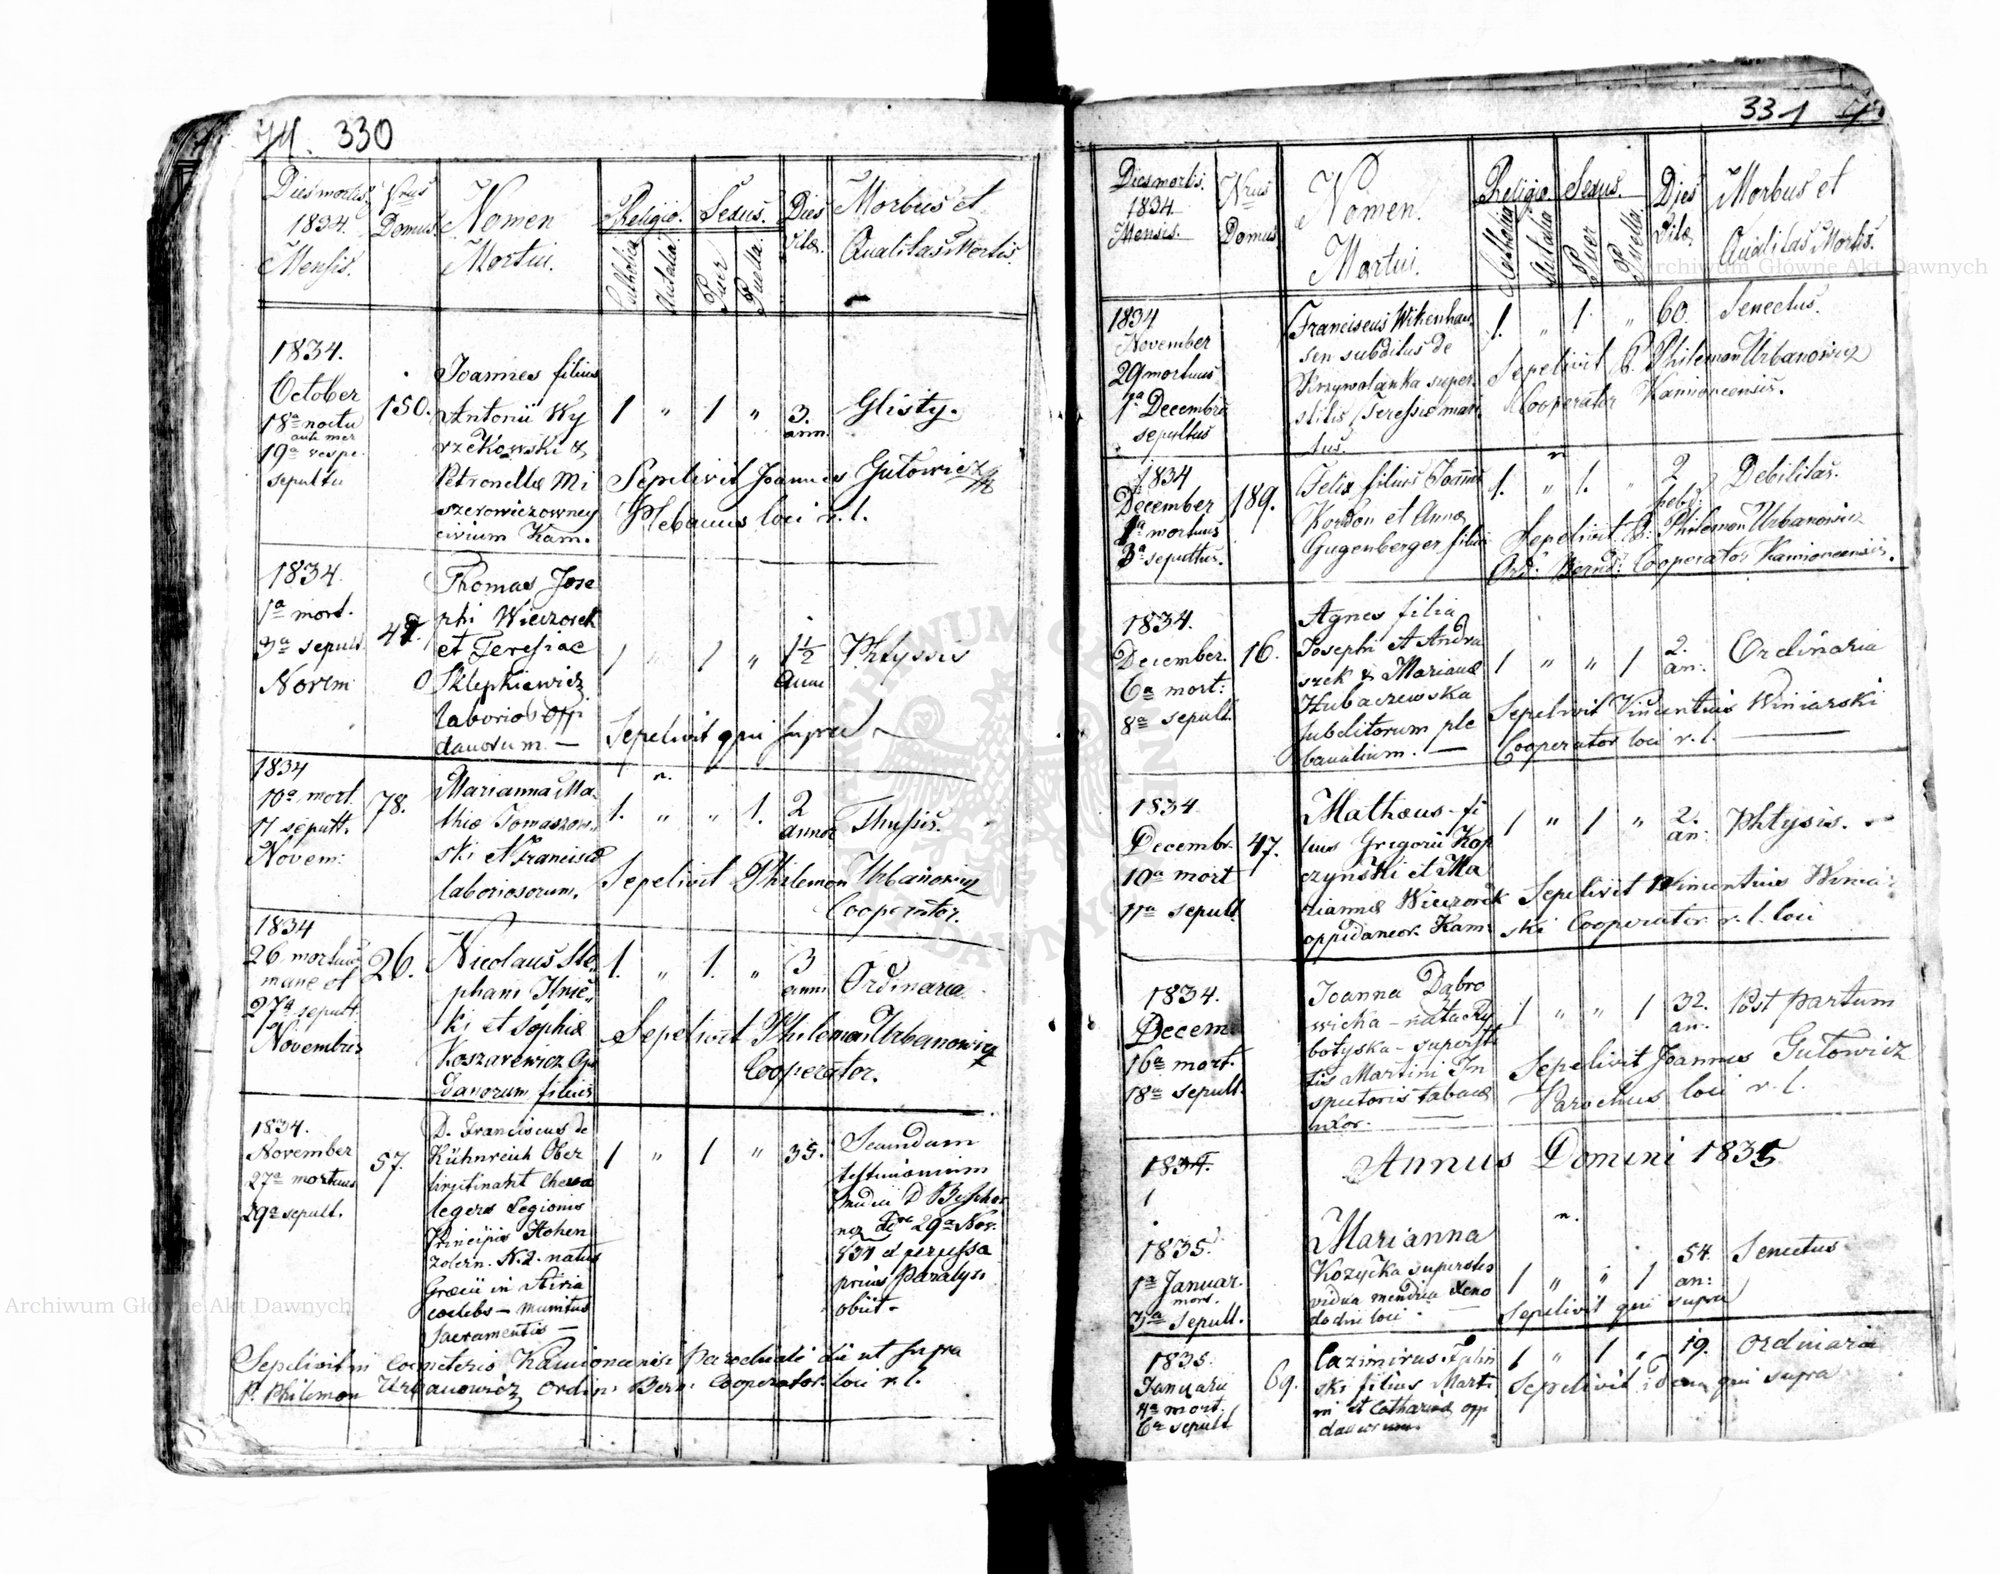 330
Dies mortis
1834.
Mensis.
Nrus
Domus.
Nomen
Mortui.
Religio.
Catholica
Sexus.
Puer
Puella.
Dies
Vitæ.
Morbus et
Qualitas Mortis.
1834.
October
18ª noctu
19ª vespe
sepultu
150.
Joannes filius
Antonii Wy
rzekowski &
Petronellæ Mi
szerowiczowney
civium Kam.
1 " 1 " 3.
ann.
Glisty.
Sepelivit Joannes Gutowicz
Plebanus loci r. l.
1834.
1ª mort.
3ª sepult.
Novem
Thomas Jose
phi Wieczorek
et Teresiae
Sklepkiewicz
danorum. —
1 " 1 " 1½
Anni
Phtyssis
Sepelivit qui supra
1834
10ª mort.
sepult.
Novem:
78.
Marianna Ma-
thiæ Tomaszow-
ski et Franciscæ
laboriosorum.
1. " " 1. 2
annor
Sepelivit Philemon Urbanowicz
Cooperator.
1834
26 mortuus
mane et
27ª sepult.
Novembris
26.
Nicolaus Ste
phani
ki et Sophiæ
Koszarewicz Opi
danorum filius
1. " 1. " 3
anni
Ordinaria
Sepelivit Philemon Urbanowicz
Cooperator.
1834.
November
27ª mortuus
29ª sepult.
57.
D. Franciscus de
Kühnreich Ober
Legionis
Principis Hohen
zolern. N. 2. natus
Græcii in Stiria
cœlebs — munitus
Sacramentis —
1 " 1 " 35.
Secundum
testimonium
29ª Nov.
834 e perpessa
prius Paralysi
obiit -
Sepelivit in Cœmeterio Kamioncensi Parochiali die ut supra
P. Philemon Urbanowicz Ordin: Bern: Cooperator loci r. l.
331
Dies mortis.
1834
Mensis.
Nrus
Domus
Nomen.
Mortui.
Religio.
Catholica
Sexus.
Puer
Puella
Dies
Vitæ
Morbus et
Qualitas Mortis.
1834
November
29 mortuus
1ª Decembris
sepultus
Franciscus Wikenhau
sen subditus de
Krzywolanka super
stitis Teressiæ mari
tus.
1. " 1. " 60.
Senectus.
Sepelivit P. Philemon Urbanowicz
Cooperator Kamioncensis.
1834
December
1ª mortuus
3ª sepultus.
189.
Felix filius Joannis
Kordon et Annæ
Gugenberger filius
1. " 1. " 2
hebd.
Debilitas.
Sepelivit P. Philemon Urbanowicz
Ord: Bernd: Cooperator Kamioncensis.
1834.
December.
6ª mort:
8ª sepult.
16.
Agnes filia
Josephi Andra
szek & Mariannæ
Hubaczewska
subditorum ple
banalium. —
1 " " 1 2.
an:
Ordinaria
Sepelivit Vincentius Winiarski
Cooperator loci r. l.
1834.
Decembr.
10ª mort
11ª sepult.
47.
Mathæus fi
lius Gregorii Kop
czynski et Ma
riannæ Wieczorek
oppidaneor. Kam:
1 " 1 " 2.
an:
Phtysis.
Sepelivit Vincentius Winiar
ski Cooperator r. l. loci
1834.
Decem:
16ª mort.
18ª sepult.
Joanna Dąbro
wicka — nata Ry
botyska — superisti
tis Martini In
spectoris tabacæ
uxor.
1 " " 1 32.
an:
Post partum
Sepelivit Joannes Gutowicz
Parochus loci r. l.
1834.
Annus Domini 1835
1835.
1ª Januar.
mort.
3ª sepult.
Marianna
Kozycka superstes
vidua mendica Xeno
dochii loci
1 " " 1 54.
an:
Senectus
Sepelivit qui supra
1835.
Januarii
4ª mort.
6ª sepult
69.
Cazimirus
ski filius Marti
ni et Catharinæ opp
danorum
1 " 1 " 19.
Ordinaria
Sepelivit idem qui supra
Archiwum Główne Akt Dawnych
Archiwum Główne Akt Dawnych
ARCHIWUM GŁÓWNE AKT DAWNYCH